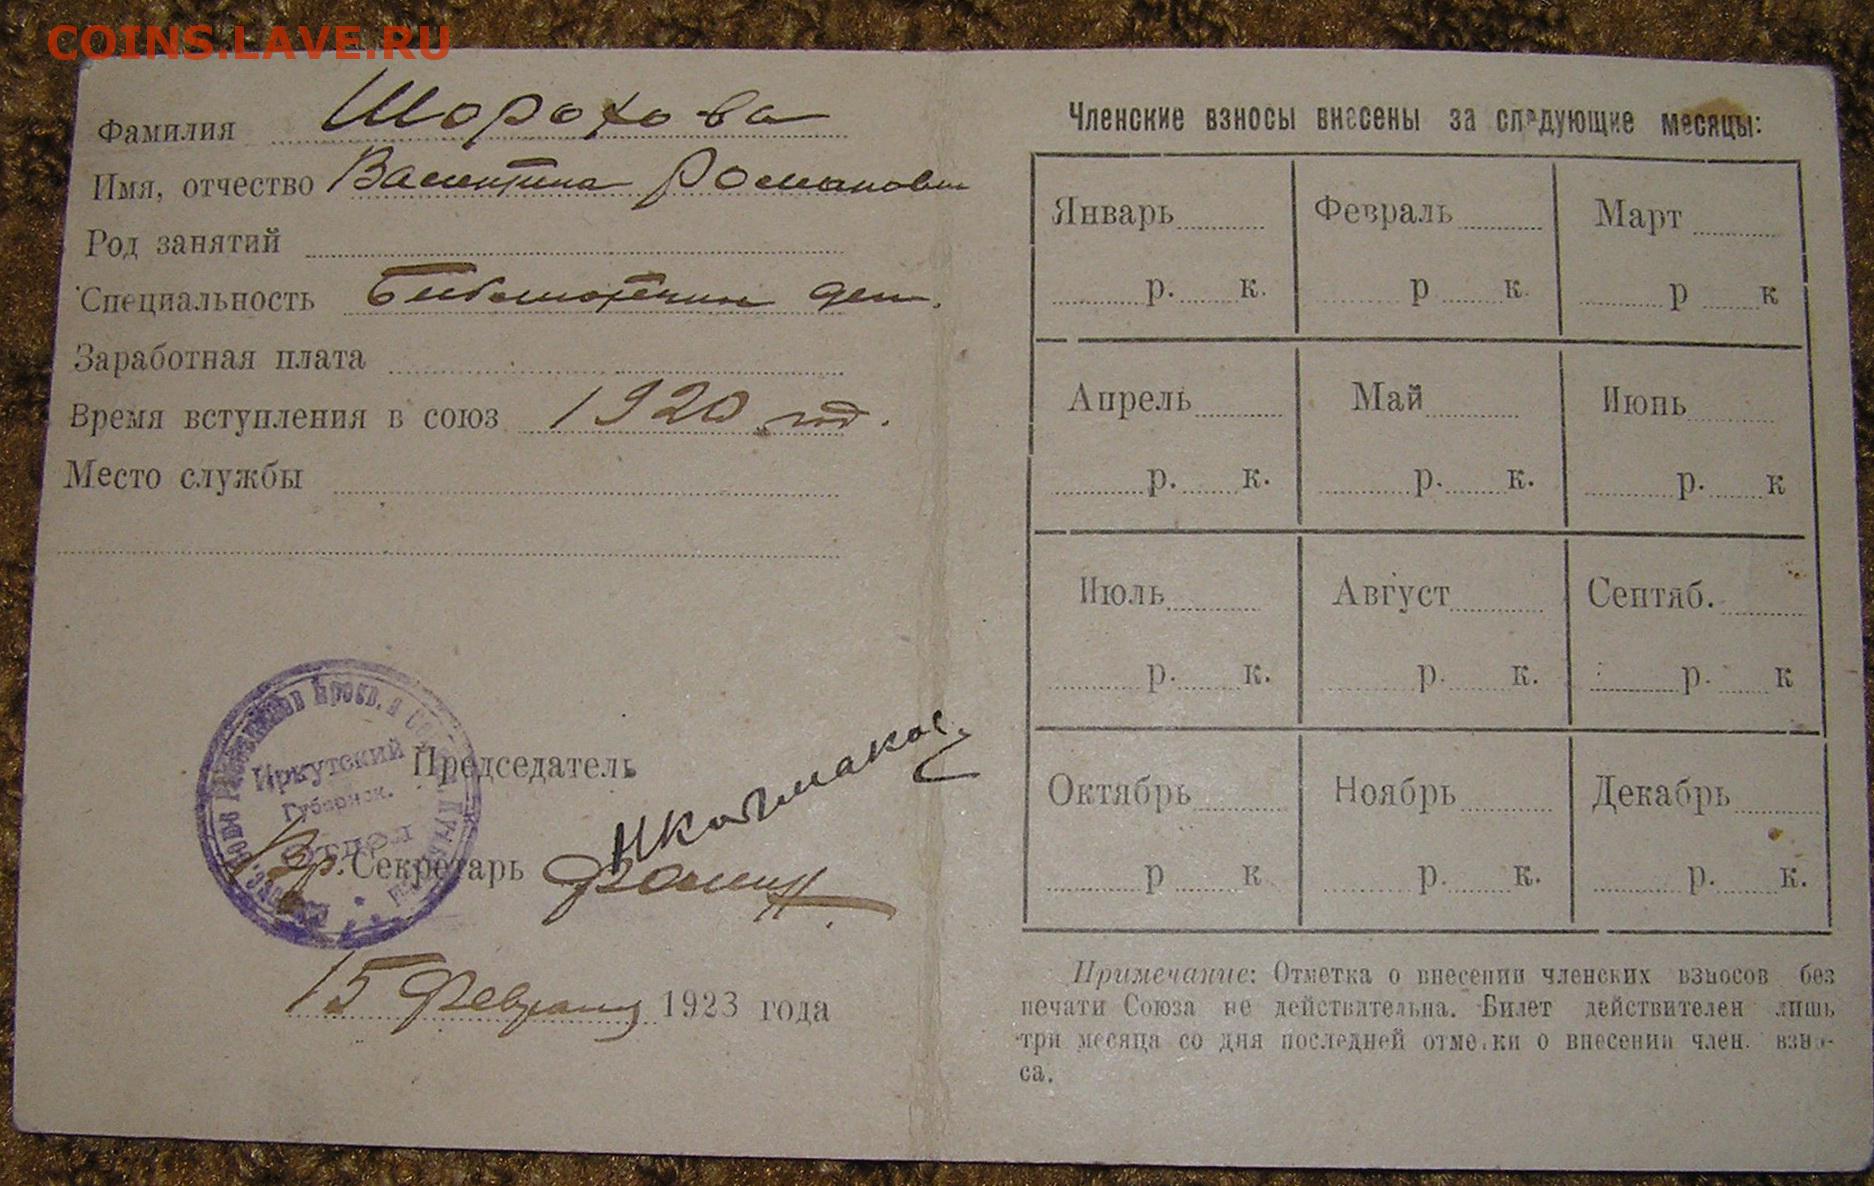 COINS.LAVE.RU
Фамилия Шорохова
Имя, отчество Валентина Романовн
Род занятий
Специальность Библиотечн дет.
Заработная плата
Время вступления в союз 1920 год.
Место службы
Иркутский
Губернск.
Отдел
Председатель
Вр. Секретарь
15 февраля 1923 года
Членские взносы внесены за следующие месяцы:
Январь Февраль Март
р. к. р к. р к
Апрель Май Июнь
р. к. р. к. р. к
Июль Август Сентяб.
р. к. р. к. р. к
Октябрь Ноябрь Декабрь
р к р. к. р. к.
Примечание: Отметка о внесении членских взносов без
печати Союза не действительна. Билет действителен лишь
три месяца со дня последней отметки о внесении член. взно-
са.